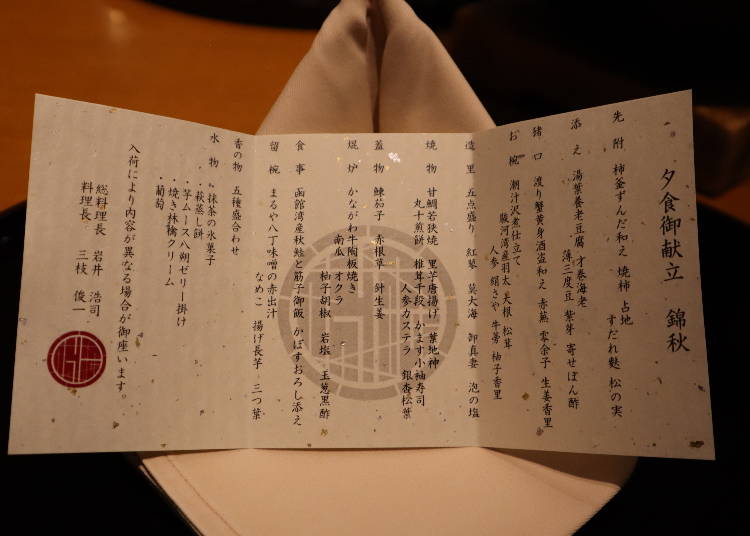 夕食御献立　錦秋
先附　柿釜ずんだ和え　焼柿　占地
すだれ麩　松の実
添え　湯葉養老豆腐　才巻海老
薄三度豆　紫芽　寄せぽん酢
猪口　渡り蟹黄身酒盗和え　赤蕪　零余子　生姜香里
お椀　潮汁沢煮仕立て
駿河湾産羽太　大根　松茸
人参　絹さや　牛蒡　柚子香里
造里　五点盛り　紅蓼　莫大海　御真妻　泡の塩
焼物　甘鯛若狭焼　里芋唐揚げ　葉地神
丸十煎餅　椎茸千段　かます小袖寿司
人参カステラ　銀杏松葉
蓋物　鰊茄子　赤根草　針生姜
焜炉　かながわ牛陶板焼き
南瓜　オクラ
柚子胡椒　岩塩　玉葱黒酢
食事　函館湾産秋鮭と筋子御飯　かぼすおろし添え
留椀　まるや八丁味噌の赤出汁
なめこ　揚げ長芋　三つ葉
香の物　五種盛合わせ
水物　・抹茶の氷菓子
・萩蒸し餅
・芋ムース八朔ゼリー掛け
・焼き林檎クリーム
・葡萄
入荷により内容が異なる場合が御座います。
総料理長　岩井　浩司
料理長　三枝　俊一